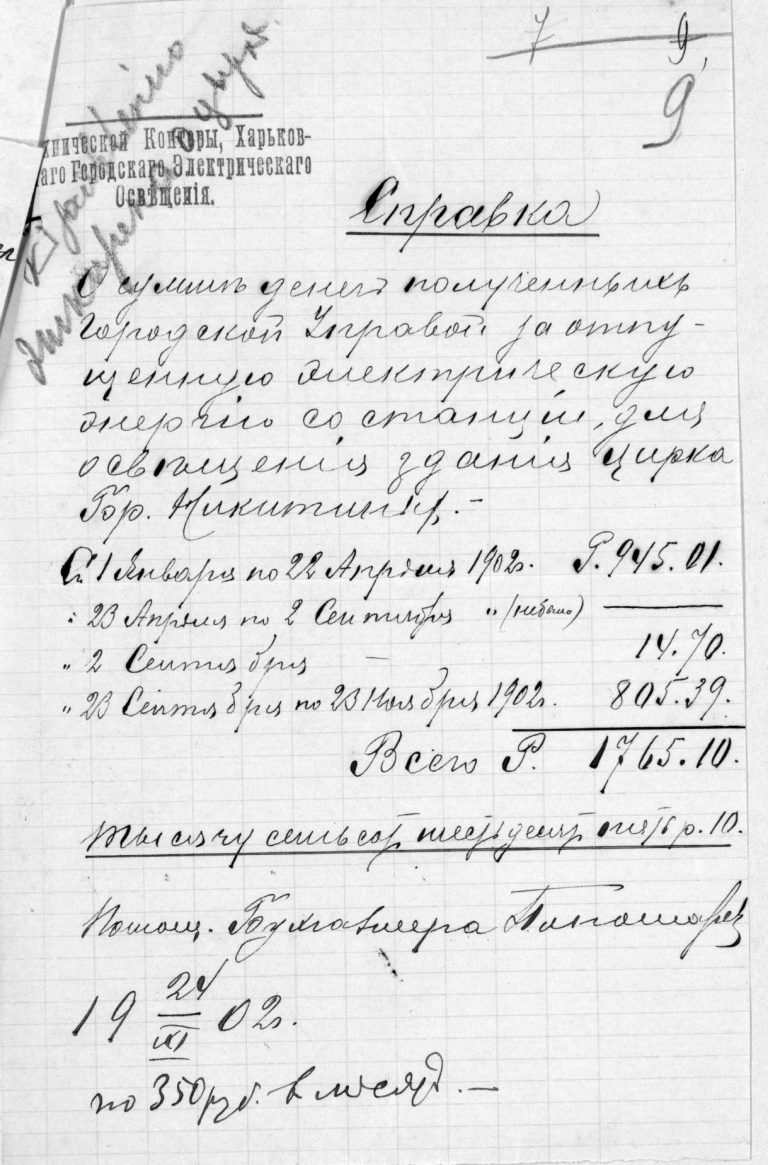 7 9,
9
хнической Конторы, Харьков-
аго Городскаго Электрическаго
Освѣщенія.
Справка
О суммѣ денегъ полученныхъ
Городской Управой за отпу-
щенную электрическую
энергію со станціи, для
освѣщенія зданія цирка
Бр. Никитиныхъ.-
Съ 1 Января по 22 Апрѣля 1902г. Р. 945.01.
" 23 Апрѣля по 2 Сентября " (небыло) —
" 2 Сентября — 14.70.
" 23 Сентября по 23 Ноября 1902г. 805.39.
Всего Р. 1765.10.
тысячу семьсот шестьдесят пять р. 10.
Помощ. Бухгалтера Пономарев
19 24/XI 02г.
по 350 руб. в месяц. —